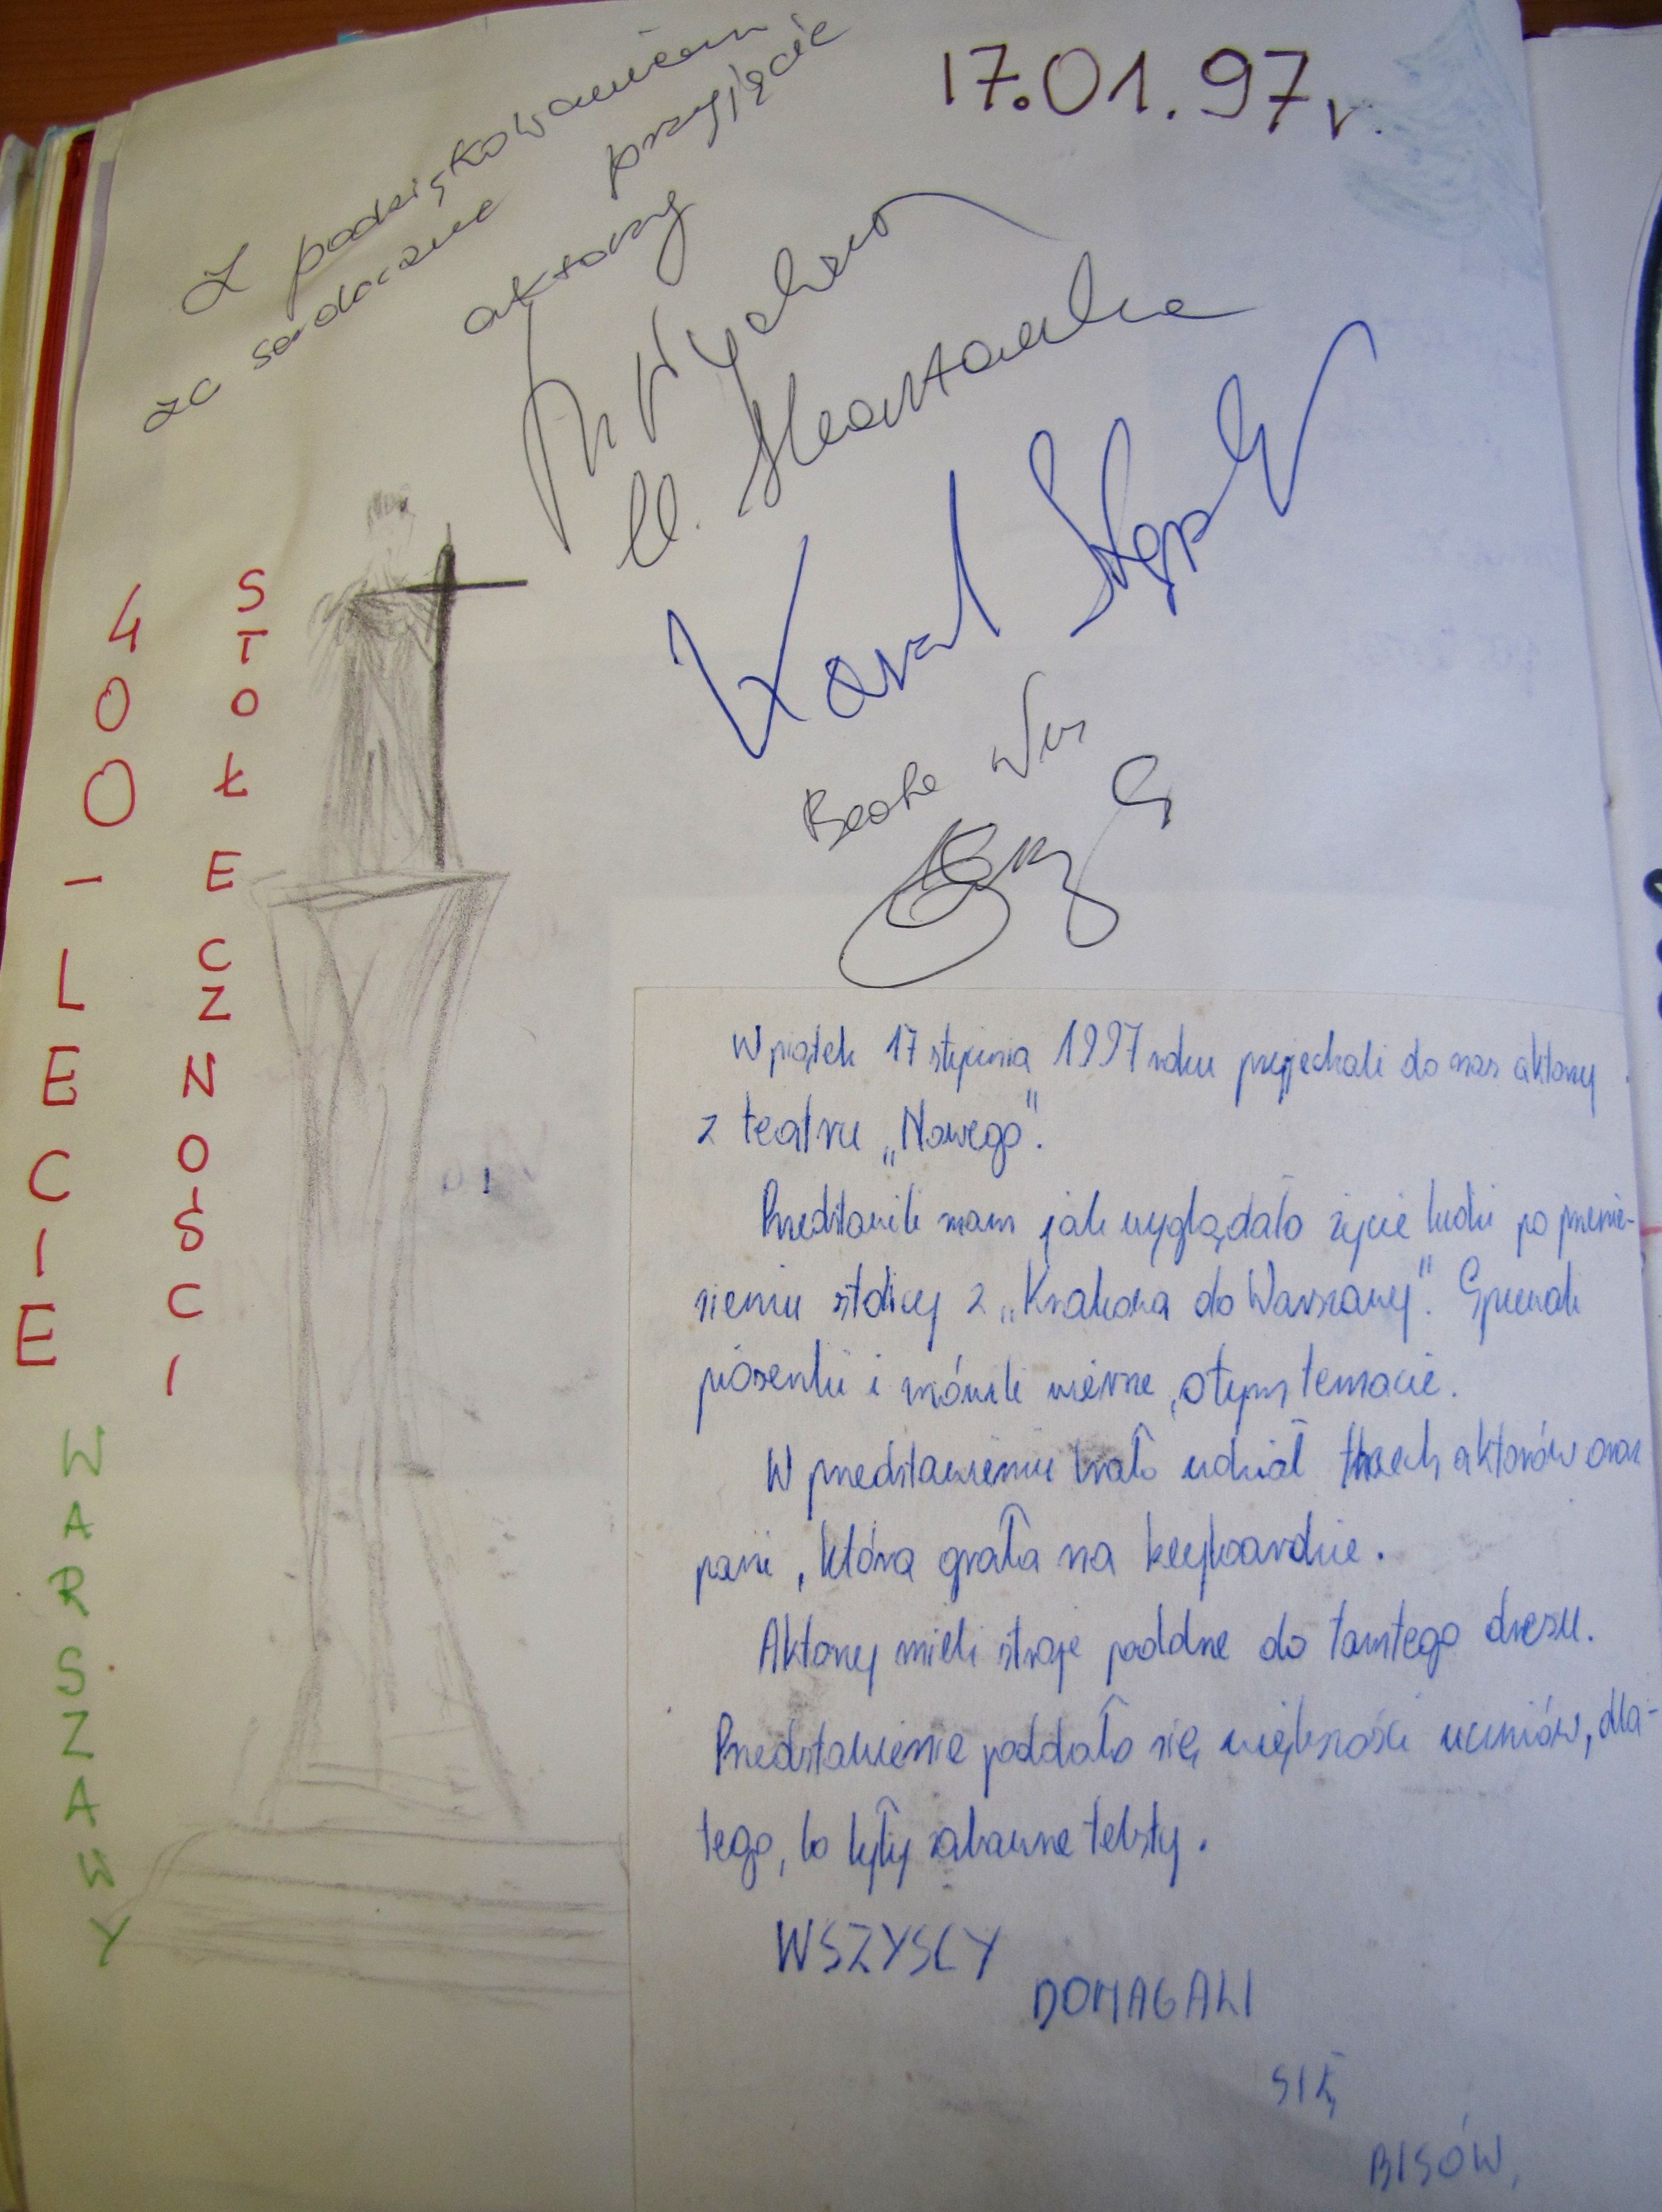 17.01.97r.
Z podziękowaniem
za serdeczne przyjęcie
aktorzy
Karol Stępk
Beata
400-LECIE
STOŁECZNOŚCI
WARSZAWY
W piątek 17 stycznia 1997 roku przyjechali do nas aktorzy
z teatru „Nowego".
Przedstawili nam jak wyglądało życie ludzi po przenie-
sieniu stolicy z „Krakowa do Warszawy". Śpiewali
piosenki i mówili wiersze, o tym temacie.
W przedstawieniu brało udział trzech aktorów oraz
pani, która grała na keyboardzie.
Aktorzy mieli stroje podobne do tamtego okresu.
Przedstawienie podobało się większości uczniów, dla-
tego, bo były zabawne teksty.
WSZYSCY
DOMAGALI
SIĘ
BISÓW,